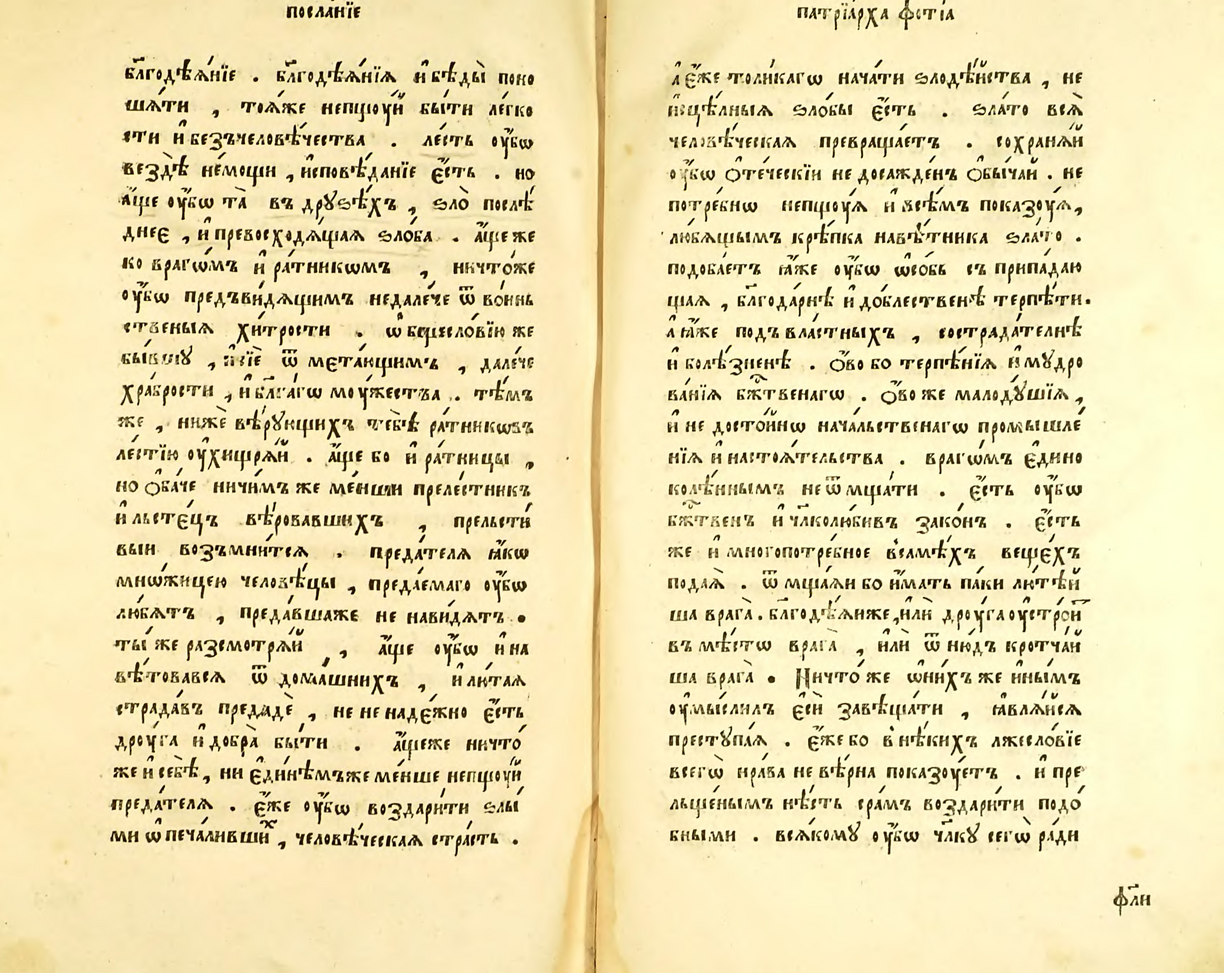 посла́нїе
бл҃годѣѧ́нїе . бл҃годѣѧ́нїѧ и҆ бѣды̀ поно
ша́ти , тоѧ́же непщꙋ́й бы́ти ле́гко
сти и҆ безъчеловѣ́чества . ле́сть ᲂу҆́бѡ
вездѣ̀ не́мощи , и҆сповѣ́данїе є҆́сть . но
а҆́ще ᲂу҆́бѡ та̀ въ дрꙋѕѣ́хъ , ѕло̀ послѣ́
днее , и҆ превосходѧ́щаѧ ѕло́ба . а҆́ще же
ко врагѡ́мъ и҆ ра́тникѡмъ , ничто́же
ᲂу҆́бѡ предъви́дѧщимъ недале́че ѿ во́инь
ственыѧ хи́трости . ѡ҆ бещесло́вїю же
бы́вшꙋ , ѿ мета́ющимъ , дале́че
хра́брости , и҆ бл҃га́гѡ моу́жества . тѣ́мъ
же , нижѐ вѣ́рꙋющихъ тебѣ̀ ра́тникѡвъ
ле́стїю ᲂу҆хищрѧ́й . а҆́ще бо и҆ ра́тницы ,
но ѻ҆ба́че ничи́мъ же ме́нши преле́стникъ
и҆ льсте́цъ вѣ́ровавшихъ , прельсти́
выи возъмни́тсѧ . преда́телѧ ꙗ҆́кѡ
мнѡ́жицею человѣ́цы , предае́маго ᲂу҆́бѡ
лю́бѧтъ , преда́вшаже не нави́дѧтъ .
ты́ же разсмотрѧ́й , а҆́ще ᲂу҆́бѡ и҆ на
вѣ́товавсѧ ѿ дома́шнихъ , и҆ лю́таѧ
страда́въ предадѐ , не не наде́жно є҆́сть
дрꙋ́га и҆ добра̀ бы́ти . а҆́щеже ничто́
же и҆ себѣ̀ , ни є҆ди́нѣмъже ме́нше непщꙋ́й
преда́телѧ . є҆́же ᲂу҆́бѡ воздари́ти ѕлы́
ми ѡ҆печа́ливших , человѣ́ческаѧ стра́сть .
патрїа́рха фѡ́тїа
а҆ є҆́же толи́кагѡ нача́ти ѕлодѣ́йства , не
и҆сцѣ́лныѧ ѕло́бы є҆́сть . ѕла́то всѧ̀
человѣ́ческаѧ превраща́етъ . сохранѧ́й
ᲂу҆́бѡ ѻ҆те́ческїи не досажде́нъ ѻ҆бы́чаи . не
потре́бнѡ непщꙋ́ѧ и҆ всѣ́мъ показꙋ́ѧ,
лю́бѧщымъ крѣ́пка навѣ́тника ѕла́то .
подоба́етъ ꙗ҆́же ᲂу҆́бѡ ѡ҆со́бь съ припада́ю
щаѧ , бл҃года́рнѣ и҆ до́блественѣ терпѣ́ти.
а҆ ꙗ҆́же подъ вла́стныхъ , сострада́телнѣ
и҆ болѣ́зненѣ . ѻ҆́во бо терпѣ́нїѧ и҆ мꙋ́дро
ва́нїѧ бж҃твенагѡ . ѻ҆́во же малодꙋ́шїѧ ,
и҆ не досто́йнѡ нача́льственагѡ промы́шле
нїѧ и҆ настоѧ́тельства . врагѡ́мъ є҆ди́но
колѣ́ннымъ не ѿмща́ти . є҆́сть ᲂу҆́бѡ
бж҃твенъ и҆ чл҃колюби́въ зако́нъ . є҆́сть
же и҆ многопотре́бное всамѣ́хъ веще́хъ
пода́ѧ . ѿ мща́ѧи бо и҆́мать па́ки лютѣ́й
ша врага̀ . бл҃годѣѧ́иже , и҆лѝ дрꙋ́га ᲂу҆стро́й
въ мѣ́стѡ врага̀ , и҆лѝ ѿ ню́дъ кротча́й
ша врага̀ . Ничто́ же ѡ҆ни́хъ же и҆ны́мъ
ᲂу҆мы́слилъ є҆сѝ завѣща́ти , ꙗ҆влѧ́йсѧ
престꙋпа́ѧ . є҆́же бо в нѣ́кихъ лжесло́вїе
всегѡ̀ нра́ва не вѣ́рна показꙋ́етъ . и҆ пре
льще́нымъ нѣ́сть сра́мъ воздари́ти подо́
бными . всѧ́комꙋ ᲂу҆́бѡ чл҃кꙋ сегѡ̀ ра́ди
фл҃и